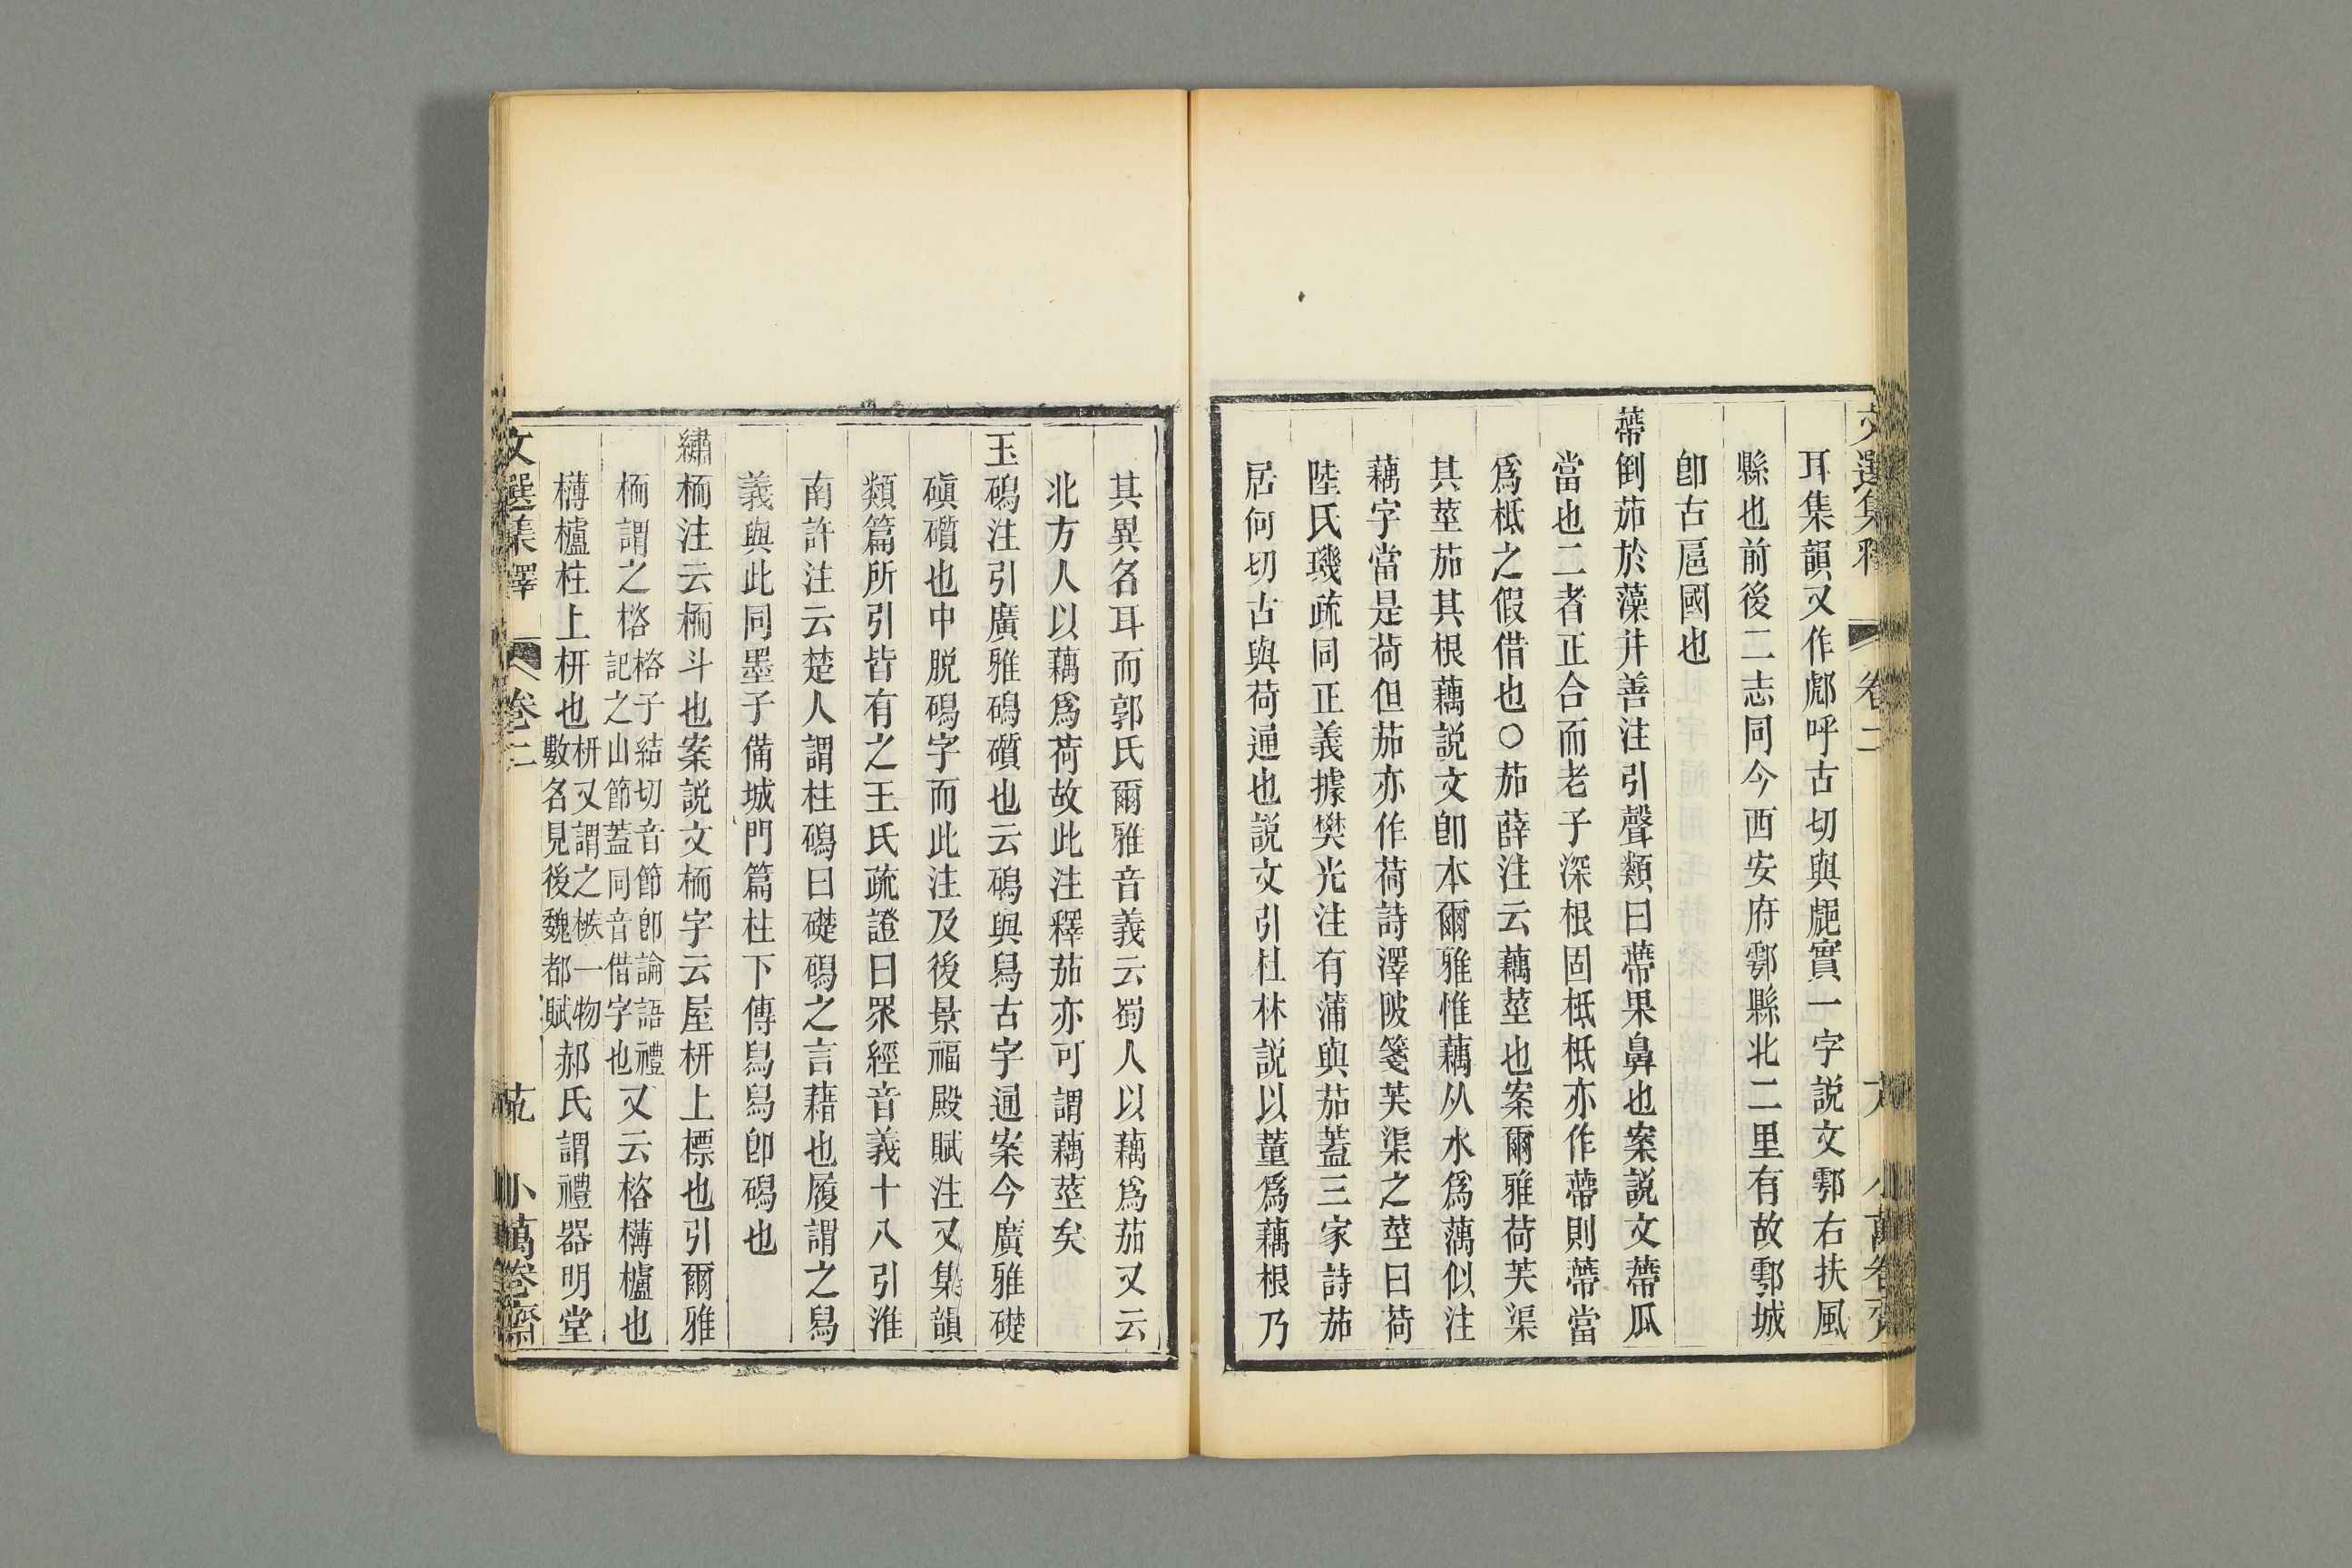 文選集釋 卷二 大 小萬卷齋
耳集韻又作鄠呼古切與戺實一字説文鄠右扶風
縣也前後二志同今西安府鄠縣北二里有故鄠城
卽古扈國也
蔕倒茄於藻井善注引聲類曰蔕果鼻也案説文蔕瓜
當也二者正合而老子深根固柢柢亦作蔕則蔕當
爲柢之假借也○茄薛注云藕莖也案爾雅荷芙渠
其莖茄其根藕説文卽本爾雅惟藕从水爲蕅似注
藕字當是荷但茄亦作荷詩澤陂箋芙渠之莖曰荷
陸氏璣疏同正義據樊光注有蒲與茄蓋三家詩茄
居何切古與荷通也説文引杜林説以蓳爲藕根乃
其異名耳而郭氏爾雅音義云蜀人以藕爲茄又云
北方人以藕爲荷故此注釋茄亦可謂藕莖矣
玉碣注引廣雅碣礩也云碣與舄古字通案今廣雅礎
磌礩也中脱碣字而此注及後景福殿賦注又集韻
類篇所引皆有之王氏疏證曰眾經音義十八引淮
南許注云楚人謂柱碣曰礎碣之言藉也履謂之舄
義與此同墨子備城門篇柱下傅舄舄卽碣也
繡栭注云栭斗也案説文栭字云屋枅上標也引爾雅
栭謂之楶楶子結切音節卽論語禮記之山節蓋同音借字也又云楶欂櫨也
欂櫨柱上枅也枅又謂之槉一物數名見後魏都賦郝氏謂禮器明堂
文選集釋 卷二 九 小萬卷齋